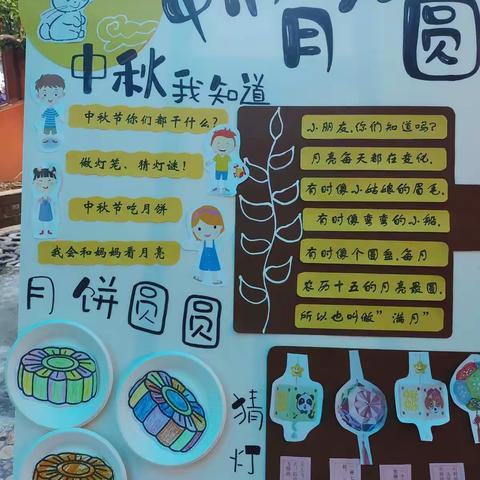 月圆
中秋我知道
中秋节你们都干什么?
做灯笼、猜灯谜!
中秋节吃月饼
我会和妈妈看月亮
小朋友,你们知道吗?
月亮每天都在变化,
有时像小姑娘的眉毛,
有时像弯弯的小船,
有时像个圆盘,每月
农历十五的月亮最圆,
所以也叫做"满月"
月饼圆圆
猜灯